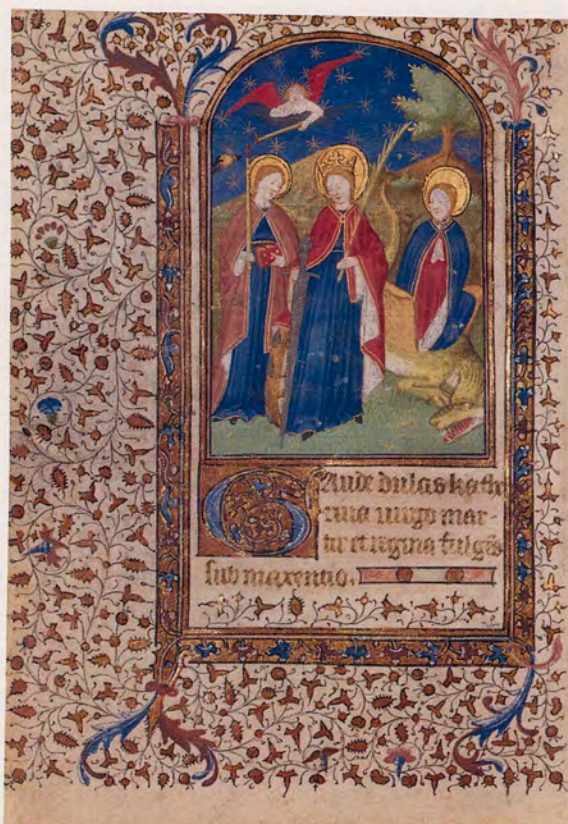 Gaude dulcis kathe
rina uirgo mar
tir et regina fulgēs
sub maxentio.